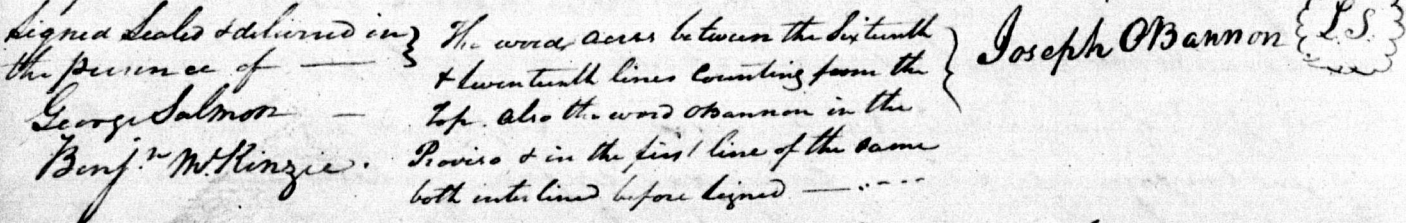 Signed Sealed & delivered in
the presence of
George Salmon
Benjn McKinzie.
The words Acres between the Sixteenth
& seventeenth lines Counting from the
Top. also the word OBannon in the
Proviso & in the first line of the same
both interlined before signed
Joseph OBannon
L.S.